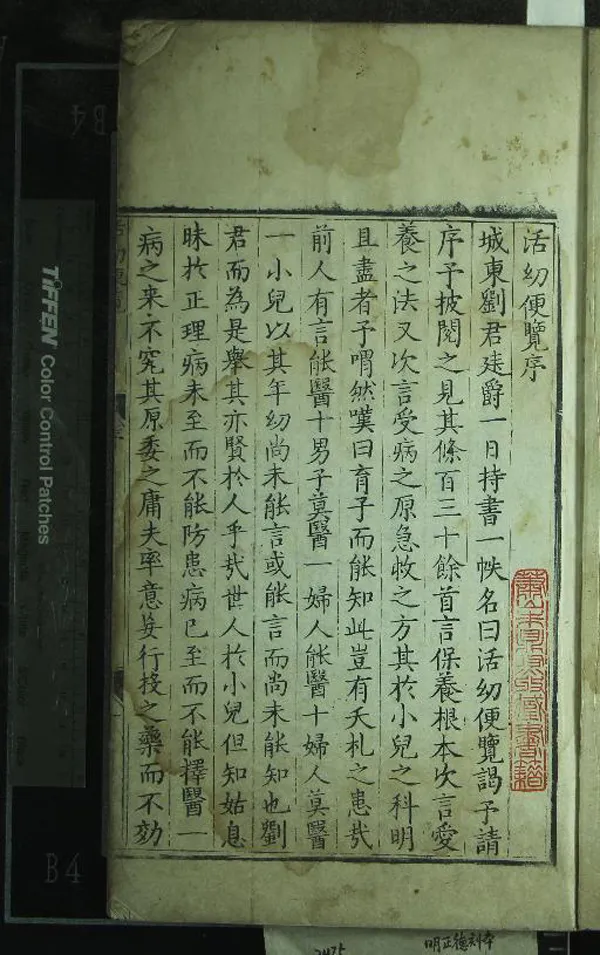 活幼便覽序
城東劉君廷爵一日持書一帙名曰活幼便覽謁予請
序予披閱之見其條百三十餘首言保養根本次言愛
養之法又次言受病之原急收之方其於小兒之科明
且盡者予喟然嘆曰育子而能知此豈有夭札之患哉
前人有言能醫十男子莫醫一婦人能醫十婦人莫醫
一小兒以其年幼尚未能言或能言而尚未能知也劉
君而為是舉其亦賢於人乎哉世人於小兒但知姑息
昧於正理病未至而不能防患病已至而不能擇醫一
病之来不究其原委之庸夫率意妄行投之藥而不効
活幼便覽
TIFFEN Color Control Patches
B4
B4
2475
明正德刻本